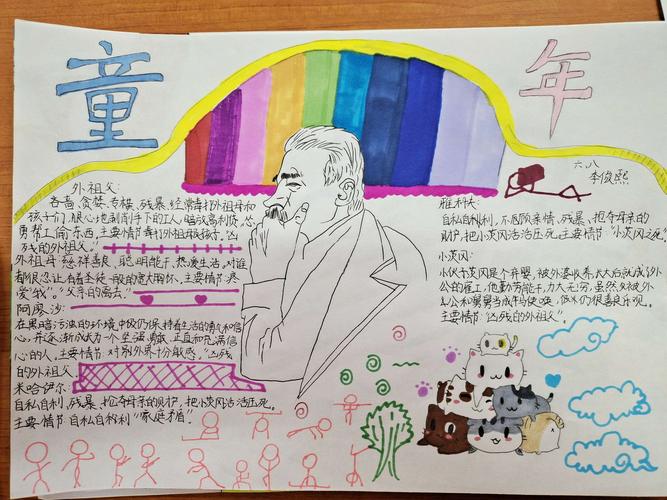 童年
六.八
李俊熙
外祖父:
吝啬、贪婪、专横、残暴,经常毒打外祖母和
孩子们,狠心地剥削手下的工人,暗放高利贷,怂
勇帮工偷东西,主要情节毒打外祖母跟孩子,"凶
残的外祖父。"
外祖母:慈祥善良,聪明能干,热爱生活。对谁
都很忍让,有着圣徒一般的宽大胸怀,主要情节:
爱"我"。"父亲的离去。"
阿廖沙:
在黑暗污浊的环境中仍保持着生活的勇气和信
心,并逐渐成长为一个坚强、勇敢、正直和充满信
心的人,主要情节:对别外界十份敏感。"凶残
的外祖父
米哈伊尔:
自私自利,残暴,抢夺母亲的财护,把小茨冈活活压死。
主要情节:自私自利"家庭矛盾"
雅科夫:
自私自利,不顾顾亲情、残暴、抢夺母亲的
财护,把小茨冈活活压死。主要情节:"小茨冈之死"
小茨冈:
小伙子茨冈是个弃婴,被外婆收养,大大后就成了外
公的雇工,他勤劳能干,力大无穷,虽然被外
公和舅舅当成牛马使唤,但他仍很善良乐观。
主要情节:"凶残的外祖父"。